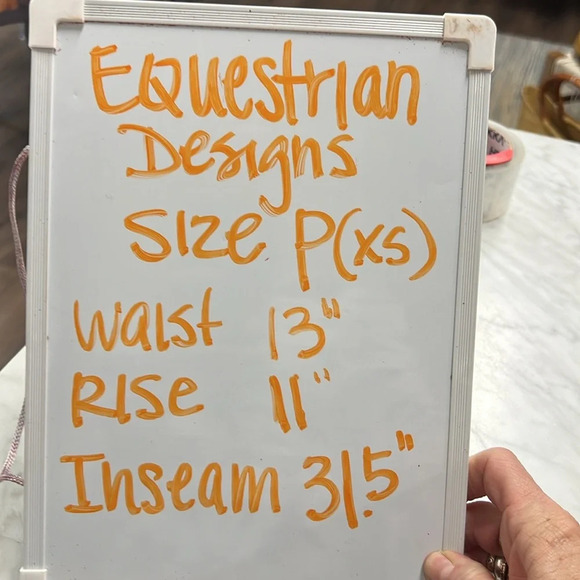 Equestrian
Designs
Size P(xs)
Waist 13"
Rise 11"
Inseam 31.5"